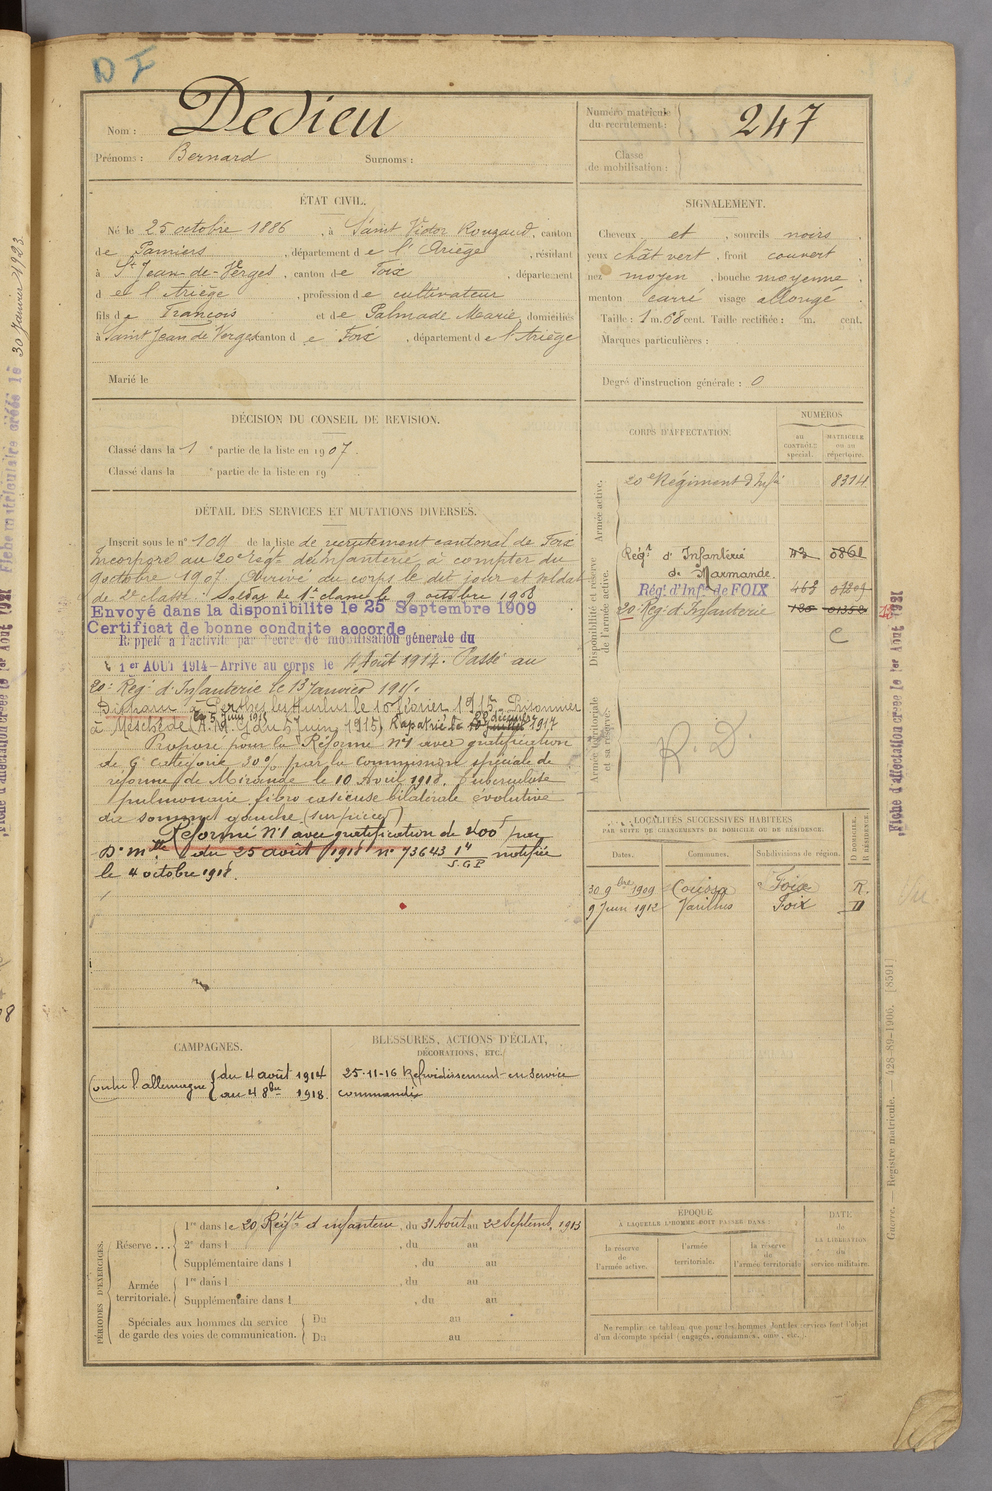 DF
Nom : Dedieu
Prénoms : Bernard Surnoms :
Numéro matricule du recrutement : 247
Classe de mobilisation :
ÉTAT CIVIL.
Né le 25 octobre 1886, à Saint Victor Rouzaud, canton
de Pamiers, département de l'Ariège, résidant
à St Jean-de-Verges, canton de Foix, département
d de l'Ariège, profession de cultivateur
fils de François et de Palmade Marie, domiciliés
à Saint Jean de Verges canton de Foix, département de l'Ariège
Marié le
SIGNALEMENT.
Cheveux et, sourcils noirs
yeux chât vert, front couvert
nez moyen, bouche moyenne
menton carré visage allongé
Taille : 1 m. 68 cent. Taille rectifiée : m. cent.
Marques particulières :
Degré d'instruction générale : 0
DÉCISION DU CONSEIL DE REVISION.
Classé dans la 1e partie de la liste en 1907.
Classé dans la e partie de la liste en 19
DÉTAIL DES SERVICES ET MUTATIONS DIVERSES.
Inscrit sous le n° 109 de la liste de recrutement cantonal de Foix
Incorporé au 20e régt d'Infanterie à compter du
9 octobre 1907. Arrivé au corps le dit jour et soldat
de 2e classe. Soldat de 1e classe le 9 octobre 1908
Envoyé dans la disponibilité le 25 Septembre 1909
Certificat de bonne conduite accordé
Rappelé à l'activité par Décret de mobilisation générale du
1er AOUT 1914 – Arrivé au corps le 4 Août 1914. Passé au
20e Régt d'Infanterie le 13 Janvier 1915.
Disparu à Perthes les Hurlus le 16 février 1915. Prisonnier
à Meschede (A.M. G du 5 Juin 1915) Rapatrié le 28 décembre 1917
Proposé pour la Réforme N°1 avec gratification
de 6e catégorie 30% par la Commission spéciale de
réforme de Mirande le 10 Avril 1918. Tuberculose
pulmonaire fibro caséeuse bilatérale évolutive
du sommet gauche (surpièces)
Réformé N°1 avec gratification de 400f par
D. mlle du 25 août 1918 n° 73643 14 S.G.P notifiée
le 4 octobre 1918.
CORPS D'AFFECTATION.
NUMÉROS
au CONTRÔLE spécial.
MATRICULE ou au répertoire.
Armée active.
20e Régiment d'Infie 8314
Disponibilité et réserve de l'armée active.
Régt d'Infanterie
de Marmande.
Rég. d'Inf. de FOIX 463
20e Rég. d'Infanterie
C
Armée territoriale et sa réserve.
R. D.
LOCALITÉS SUCCESSIVES HABITÉES
PAR SUITE DE CHANGEMENTS DE DOMICILE OU DE RÉSIDENCE.
Dates. Communes. Subdivisions de région. D DOMICILE. R RÉSIDENCE.
30 9bre 1909 Foix R.
9 Juin 1912 Varilhes Foix D
CAMPAGNES.
Contre l'allemagne { du 4 août 1914
au 4 8bre 1918.
BLESSURES, ACTIONS D'ÉCLAT,
DÉCORATIONS, ETC.
25-11-16 Refroidissement en service
commandé
PÉRIODES D'EXERCICES.
Réserve... 1re dans le 20 Régt d'infanterie, du 31 Août au 22 Septemb. 1913
2e dans l , du au
Supplémentaire dans l , du au
Armée territoriale. 1re dans l , du au
Supplémentaire dans l , du au
Spéciales aux hommes du service Du au
de garde des voies de communication. Du au
ÉPOQUE
À LAQUELLE L'HOMME DOIT PASSER DANS :
la réserve de l'armée active.
l'armée territoriale.
la réserve de l'armée territoriale
DATE de LA LIBÉRATION du service militaire.
Ne remplir ce tableau que pour les hommes dont les services font l'objet
d'un décompte spécial (engagés, condamnés, omis, etc.).
Guerre. — Registre matricule. — 428-89-1906. [8591]
Fiche d'affectation créée le 1er Août 1931
30 Janvier 1923.